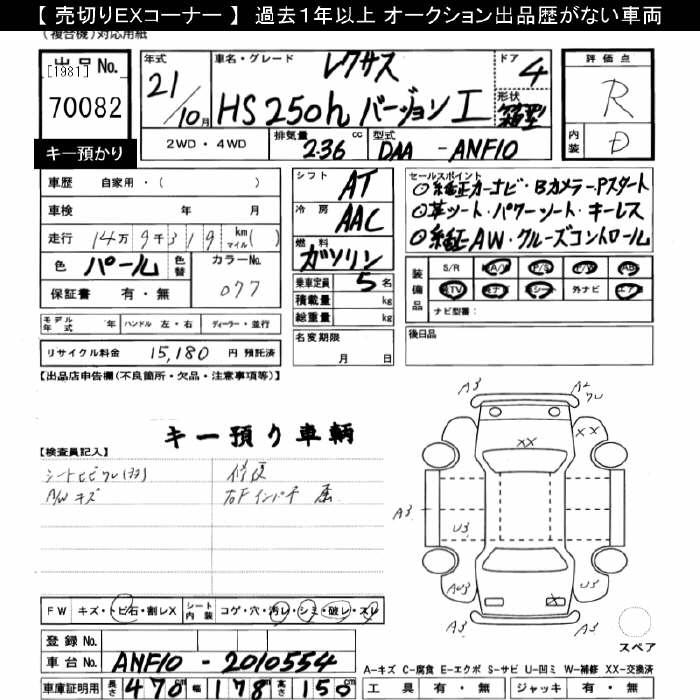 【 売切りEXコーナー 】 過去１年以上 オークション出品歴がない車両
(複合機)対応用紙
出品 No.
[1981]
70082
キー預かり
年式
21/10月
車名・グレード
レクサス
HS250h バージョン I
ドア
4
形状
箱型
評価点
R
内装
D
2WD・4WD
排気量
2.36 cc
型式
DAA - ANF10
車歴 自家用・( )
車検 年 月
走行 14万 9千 319 km マイル( )
色 パール 色替 カラーNo. 077
保証書 有・無
シフト AT
冷房 AAC
燃料 ガソリン
乗車定員 5 名
積載量 kg
総重量 kg
セールスポイント
◎純正カーナビ・Bカメラ・Pスタート
◎革シート・パワーシート・キーレス
◎純正AW・クルーズコントロール
装備品
S/R A/W P/S P/W AB
TV ナビ シート 外ナビ エアB
ナビ型番：
モデル年式 年 ハンドル 左・右 ディーラー・並行
リサイクル料金 15,180 円 預託済
名変期限
月 日
後日品
【出品店申告欄(不良箇所・欠品・注意事項等)】
キー預り車輌
【検査員記入】
シートヒビワレ 修復
A/W キズ 右Fインパネ
A3 A2 ワレ
XX XX
A3 U3
AU3 U3
X
A3 A3
スペア
FW キズ・トビ石・割レX シート内装 コゲ・穴・汚レ・シミ・破レ・スレ
登録 No.
車台 No. ANF10 - 2010554
車庫証明用 長さ 470 cm 幅 178 cm 高さ 150 cm
A-キズ C-腐食 E-エクボ S-サビ U-凹ミ W-補修 XX-交換済
工具 有・無 ジャッキ 有・無